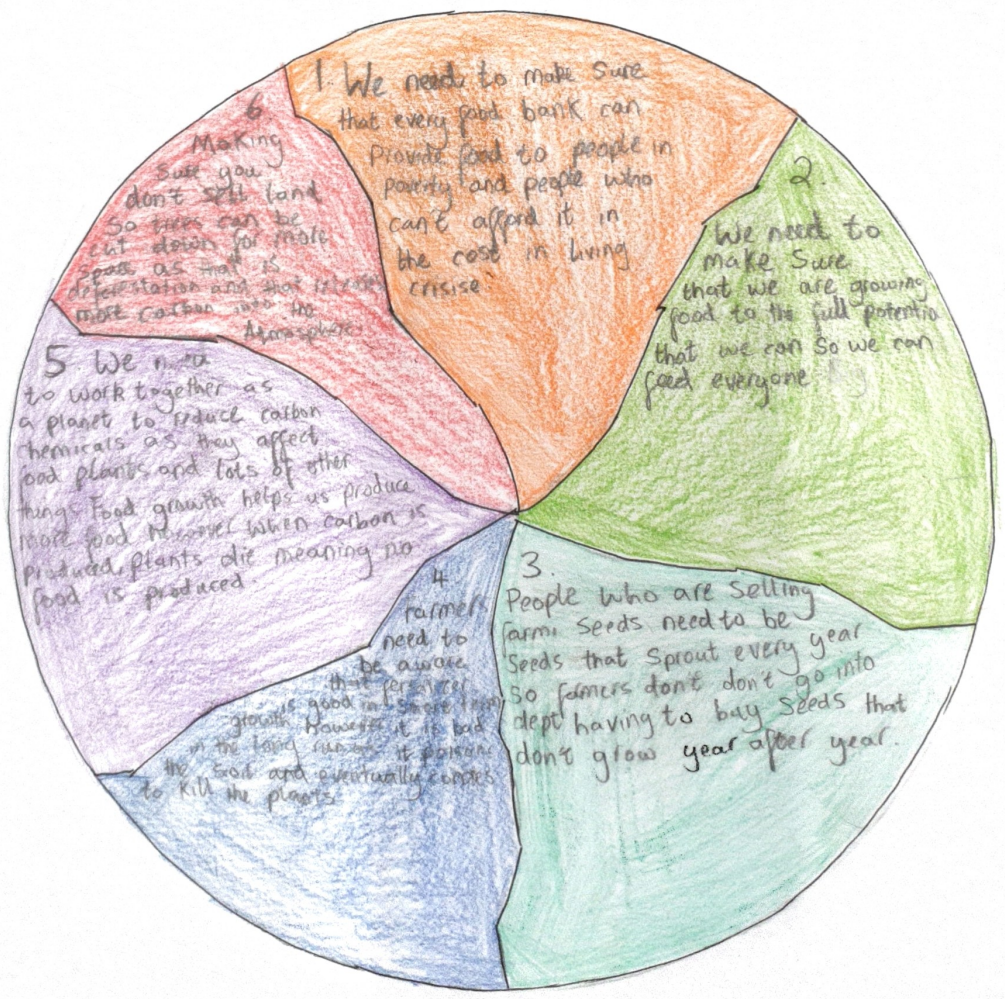 1. We need to make Sure
that every food bank can
Provide food to people in
poverty and people who
can't afford it in
the cost in living
crisise.
2.
We need to
make Sure
that we are growing
food to the full potentia
that we can So we can
feed everyone
3.
People who are Selling
farmi Seeds need to be
Seeds that Sprout every year
So farmers don't don't go into
dept having to buy Seeds that
don't grow year after year.
4
Farmers
need to
be aware
that fertilizer
is good in Short term
growth However it is bad
in the long run as it poisons
the Soil and eventually comes
to kill the plants
5. We need
to work together as
a planet to reduce carbon
chemicals as they affect
food plants and lots of other
things. Food growth helps us produce
more food However When carbon is
Produced, Plants die meaning no
food is produced.
6
Making
Sure you
don't Sell land
So trees can be
cut down for more
space as that is
deforestation and that releases
more carbon into the
Atmosphere.